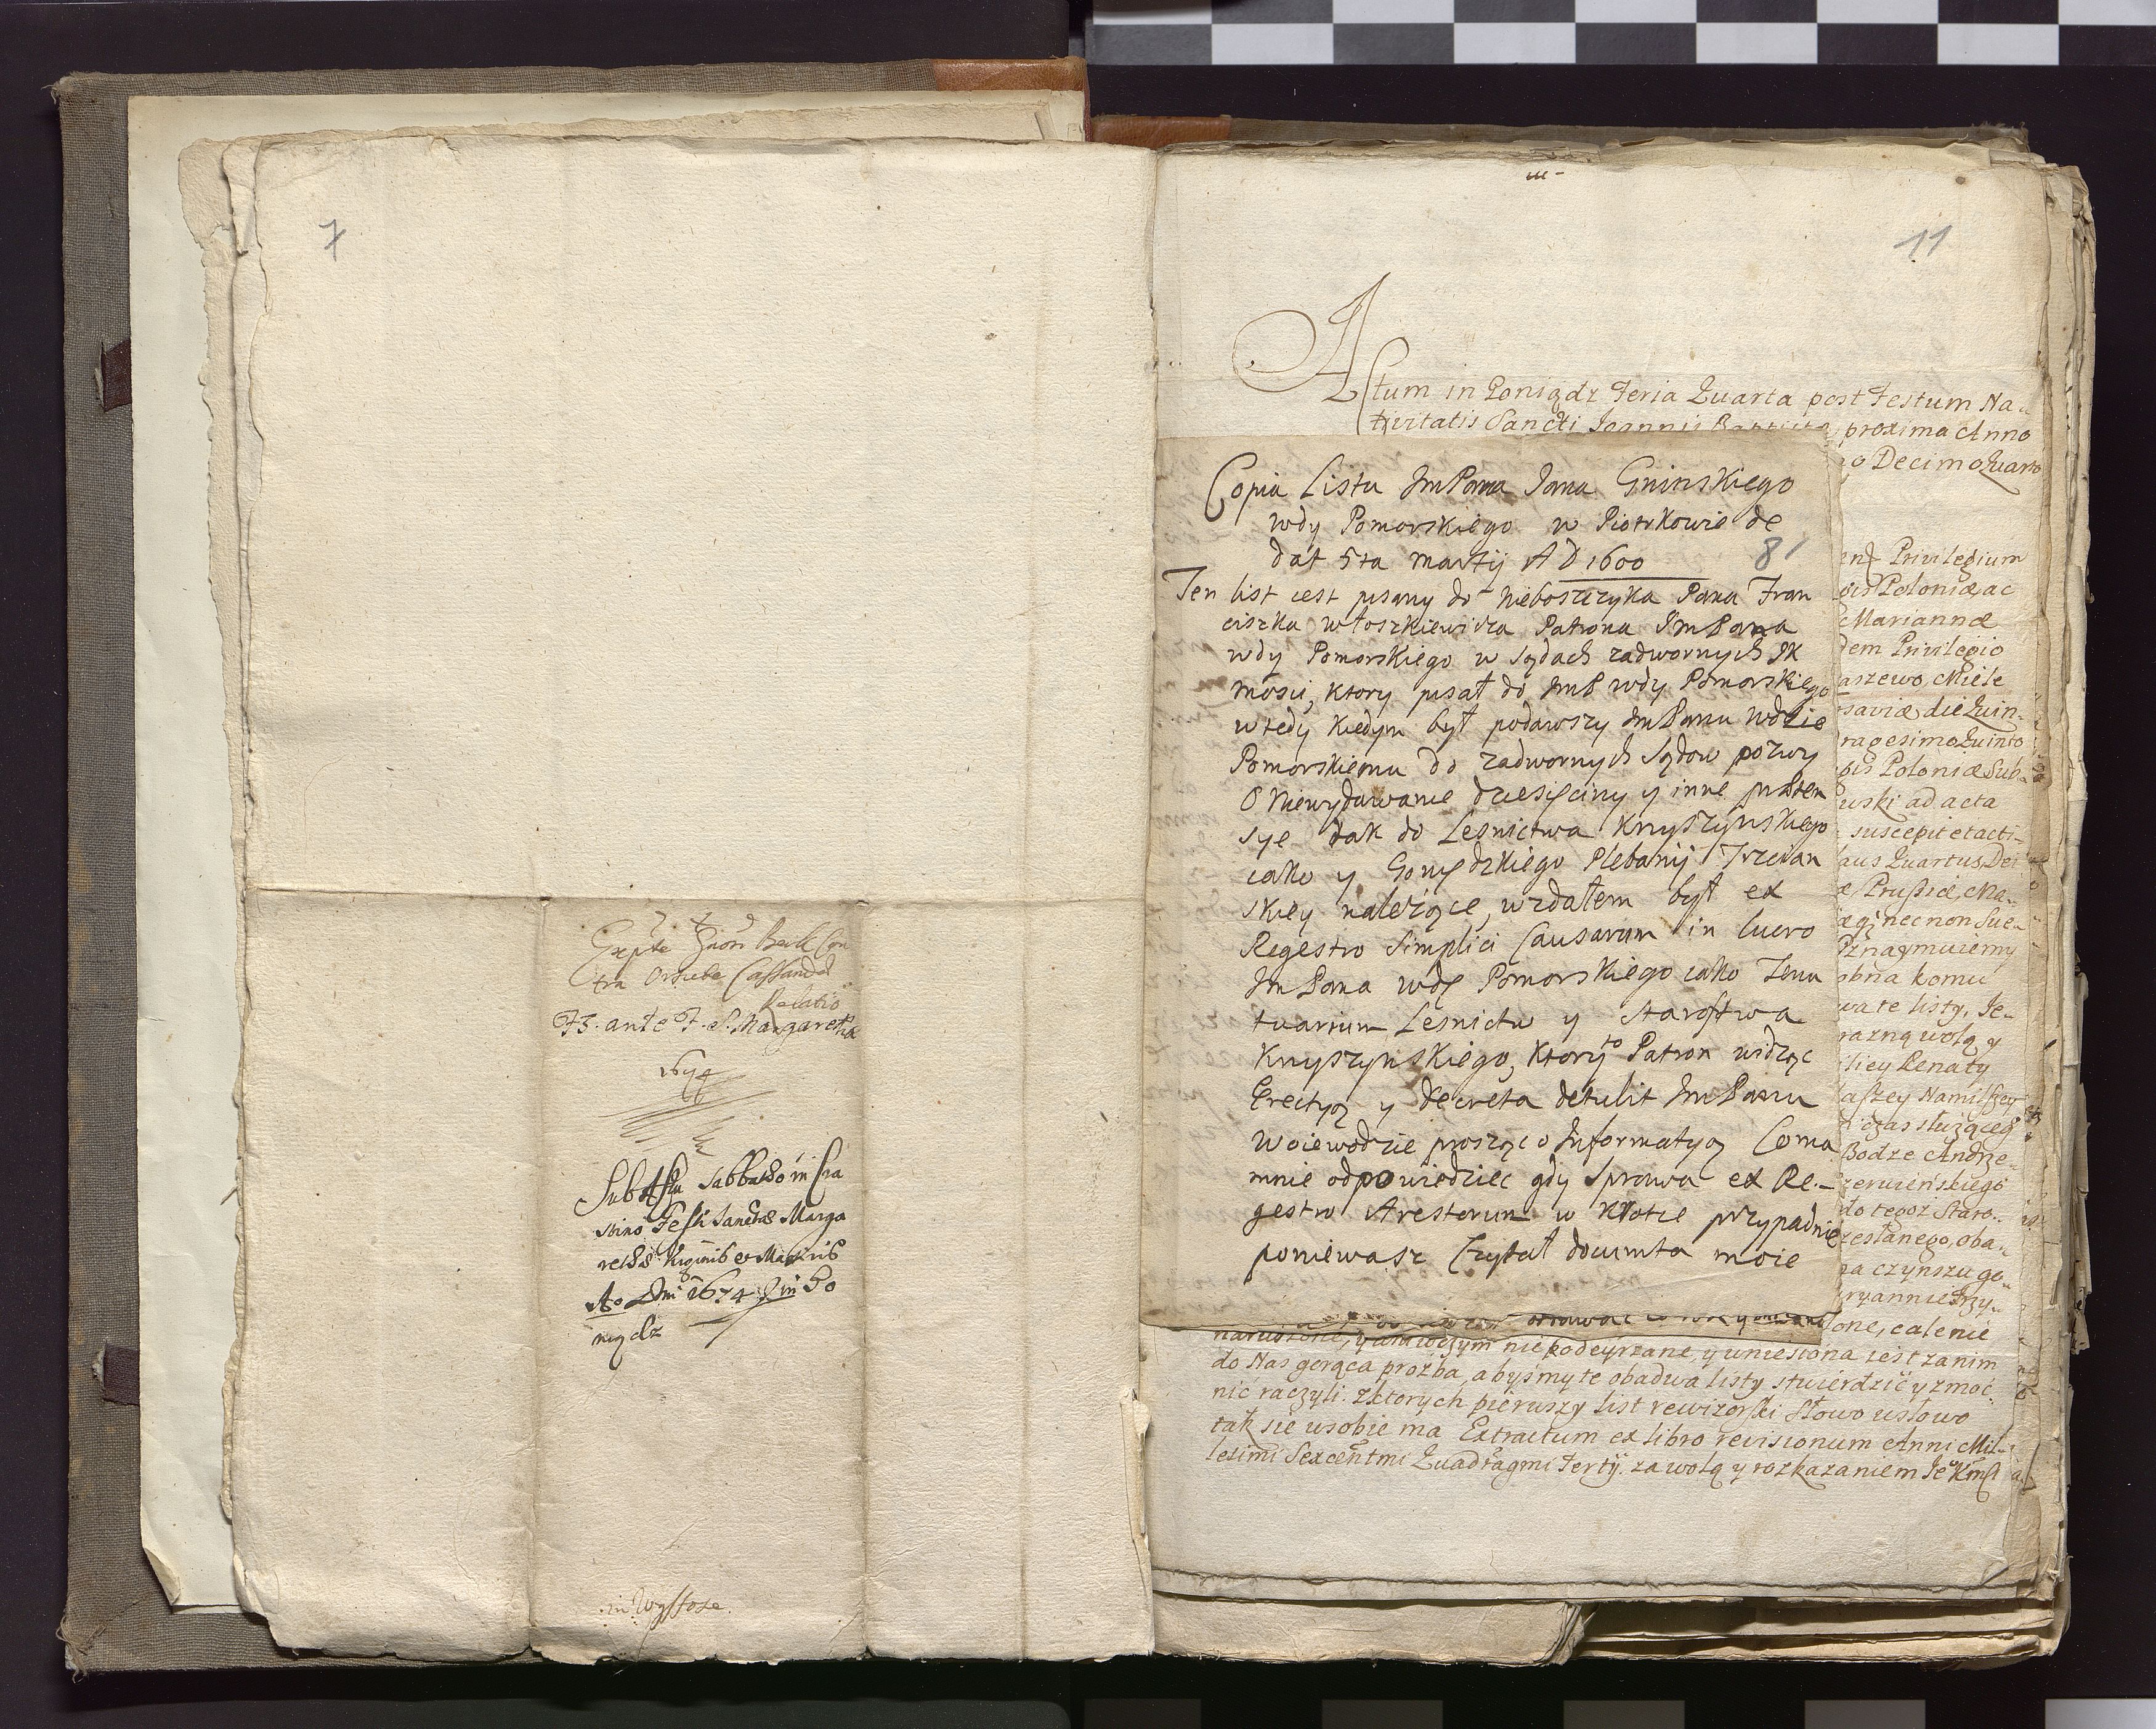 7
Relatio
F3. ante F. S. Margaretha
1674
Sabbatho in Cra
stino Festi Sanctae Marga
rethae Virginis et Martiris
Ao Dni 1674 in Go
niądz
in Wyssose.
11
Actum in Goniądz Feria Quarta post Festum Na-
tivitatis Sancti Joannis proxima Anno
Decimo Quarto
Copia Listu ImPana Jana Gninskiego
wdy Pomorskiego w Piotrkowie de
dat 5ta Martij AD 1600
8
Ten list iest pisany do nieboszczyka Pana Fran
ciszka włoszkiewicza Patrona ImPana
wdy Pomorskiego w sądach zadwornych JK
mosci, ktory pisał do ImP wdy Pomorskiego
wtedy kiedym był podawszy ImPanu Wdzie
Pomorskiemu do zadwornych Sądow pozwy
O Niewydawanie dziesięciny y inne preten
sye tak do Lesnictwa Knyszynskiego
iako y Goniędzkiego Plebanij Trzcian
skiey należące, wzdałem był ex
Regestro Simplici Causarum in lucro
ImPana wdę Pomorskiego iako Tenu
tvarium Lesnictw y Starostwa
Knyszynskiego, Ktory to Patron widząc
Erectyą y decreta detulit ImPanu
Woiewodzie prosząc o Informatyą Coma
mnie odpowiedziec gdy Sprawa ex Re-
gestro Arestorum w Krotce przypadnie
poniewasz Czytał documta moie
Privilegium
Poloniæ, ac
Mariannæ
dem Privilegio
aszewo, Miele
saviæ die Quin-
ragesimo Quinto
Poloniæ Sub-
uski ad acta
suscepit et acti-
laus Quartus, Dei
æ, Prussiæ, Ma-
nec non Sue-
znaymuiemy
obna komu
wate listy, Je-
razną wolą y
liey Renaty
aszey Namilszey
czas służącey
Bodze Andrze-
zerwieńskiego
do tegoz Staro-
zesłanego, oba-
na czynszu go-
ryannie Trzy-
one, calenie
naruszone, y niewczym nie podeyrzane, y uniesiona iest zanim
do Nas gorąca prożba, abyśmy te obadwa listy stwierdzić y zmoc-
nić raczyli. Zktorych pierwszy list rewizorski Słowo wsłowo
tak sie wsobie ma Extractum ex libro revisionum Anni Mil-
lesimi Sexcentmi Quadragmi Tertij. za wolą y rozkazaniem Je Kmsci